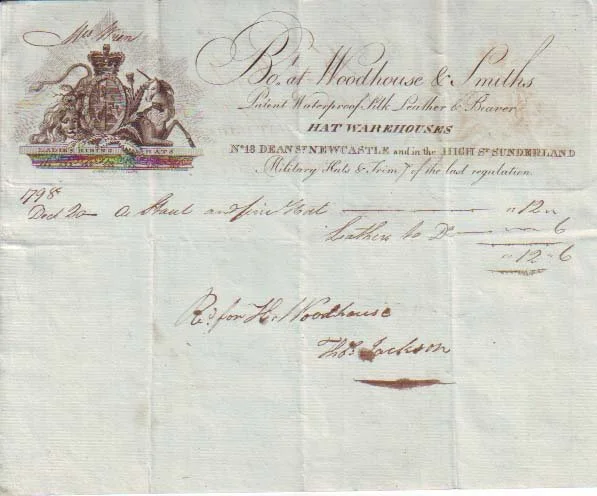 Mrs Wren
Bot. at Woodhouse & Smiths
Patent Waterproof Silk Leather & Beaver
HAT WAREHOUSES
No. 18 DEAN St. NEWCASTLE and in the HIGH St. SUNDERLAND
Military Hats & Trimgs. of the last regulation.
LADIES RIDING HATS
1798
Decr 20 — a Stout and fine Hat — " 12 "
Leather to Do — " — " 6
" 12 " 6
Recd for H. Woodhouse
Thos Jackson